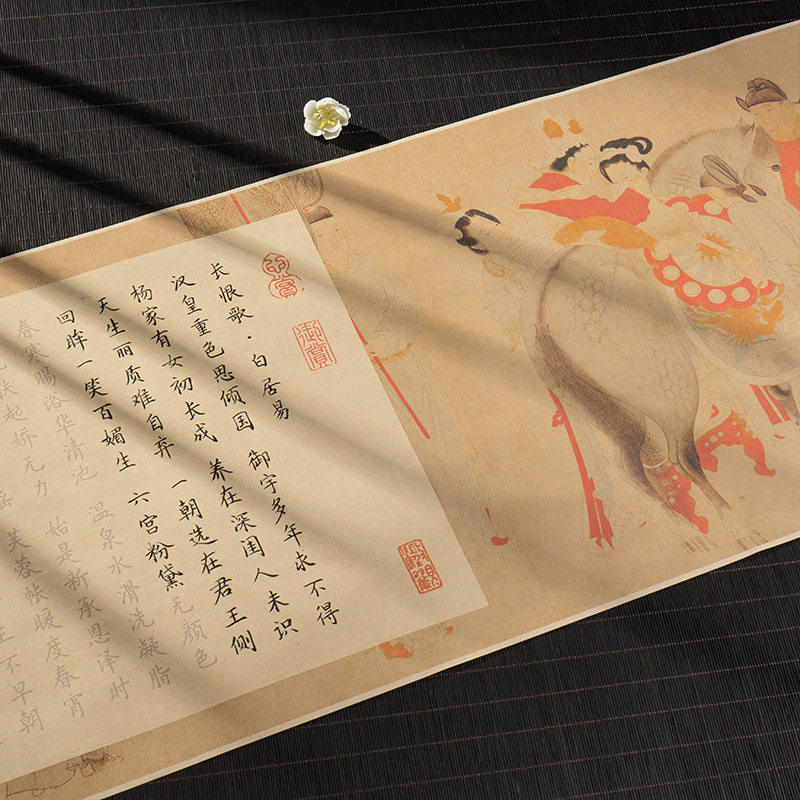 长恨歌·白居易
汉皇重色思倾国 御宇多年求不得
杨家有女初长成 养在深闺人未识
天生丽质难自弃 一朝选在君王侧
回眸一笑百媚生 六宫粉黛无颜色
春寒赐浴华清池 温泉水滑洗凝脂
扶起娇无力 始是新承恩泽时
摇 芙蓉帐暖度春宵
王不早朝
御赏